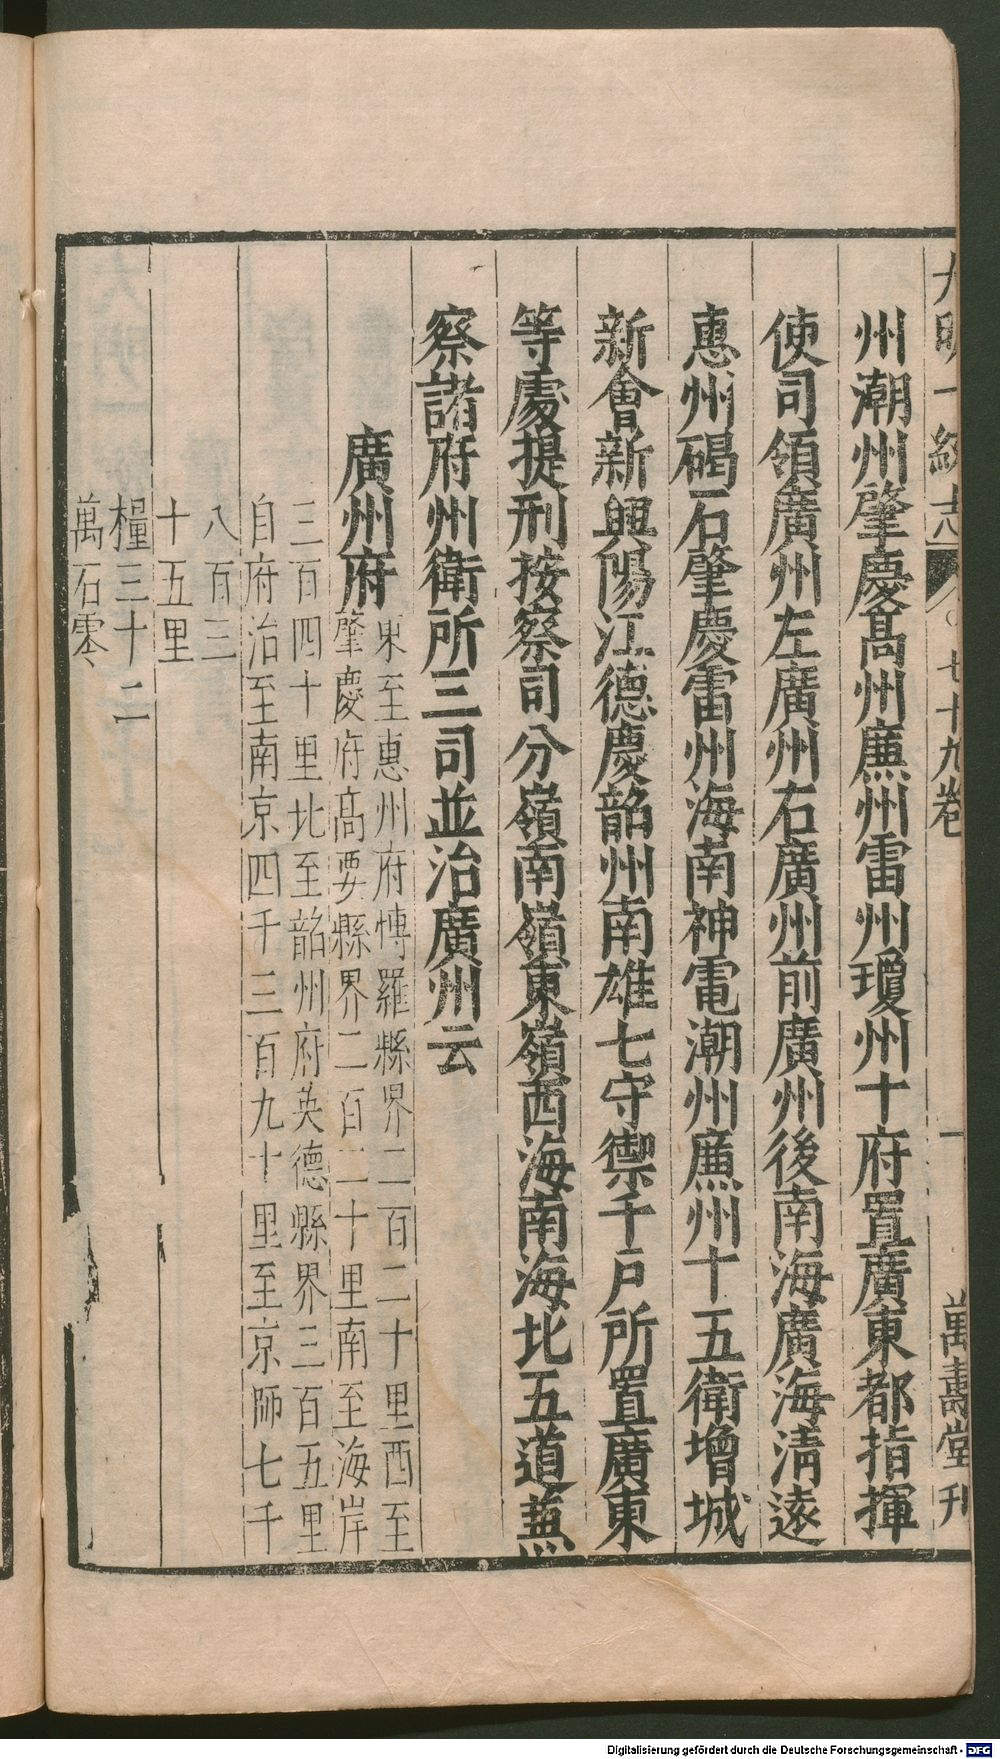 大明一統志 七十九卷 一 萬壽堂刊
州潮州肇慶高州廉州雷州瓊州十府置廣東都指揮
使司領廣州左廣州右廣州前廣州後南海廣海清遠
惠州碣石肇慶雷州海南神電潮州廉州十五衛增城
新會新興陽江德慶韶州南雄七守禦千戶所置廣東
等處提刑按察司分嶺南嶺東嶺西海南海北五道兼
察諸府州衛所三司並治廣州云
廣州府
東至惠州府博羅縣界二百二十里西至
肇慶府高要縣界二百二十里南至海岸
三百四十里北至韶州府英德縣界三百五里
自府治至南京四千三百九十里至京師七千
八百三
十五里
糧三十二
萬石零
Digitalisierung gefördert durch die Deutsche Forschungsgemeinschaft - DFG